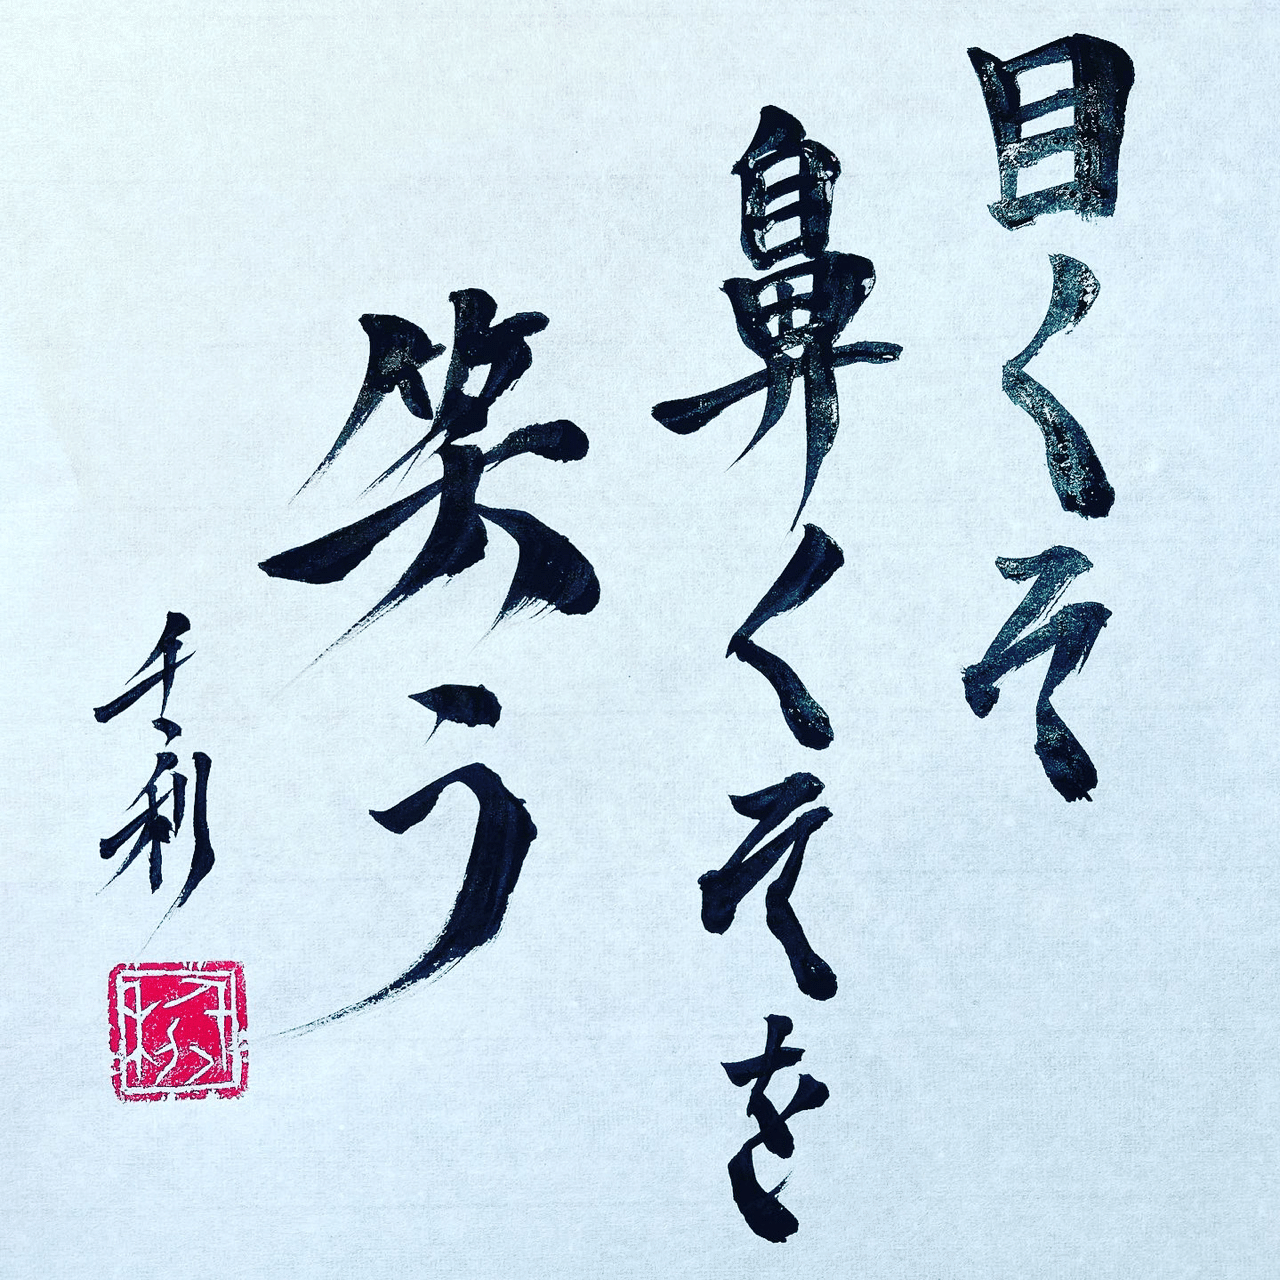 目くそ
鼻くそを
笑う
千利